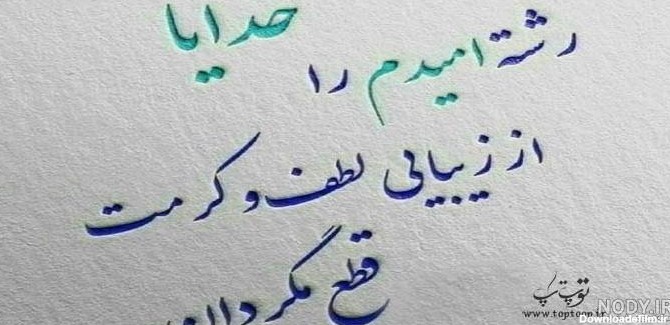 خدایا
رشتهٔ امیدم را
از زیبایی لطف و کرمت
قطع مگردان
توپ تاپ
www.toptoop.ir
NODY.IR
Downloadefilm.ir